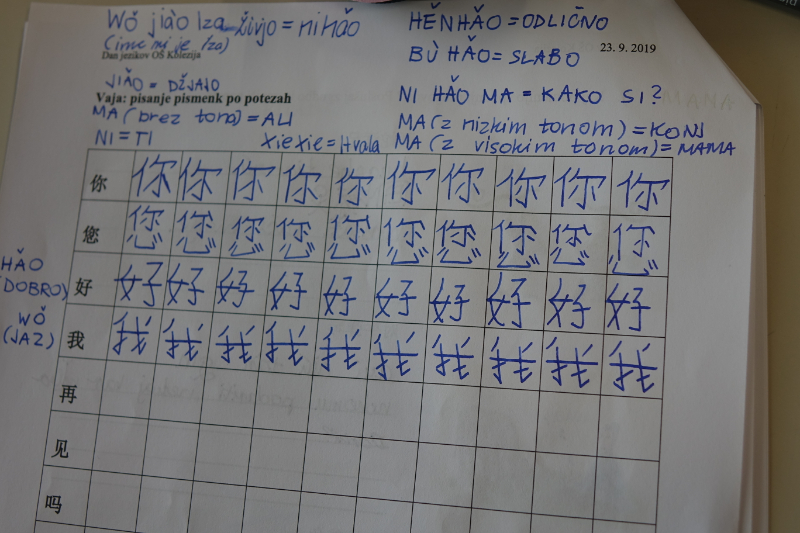 Wǒ jiào Iza živjo = nihǎo
(ime mi je Iza)
Dan jezikov OŠ Kolezija
HĚNHǍO = ODLIČNO
BÙ HǍO = SLABO
23. 9. 2019
JIÀO = DŽJAJO
Vaja: pisanje pismenk po potezah
NI HǍO MA = KAKO SI?
MA (brez tona) = ALI
MA (z nizkim tonom) = KONJ
NI = TI
xiexie = Hvala
MA (z visokim tonom) = MAMA
你 你 你 你 你 你 你 你 你 你 你
您 您 您 您 您 您 您 您 您 您 您
HǍO
(DOBRO)
好 好 好 好 好 好 好 好 好 好 好
WǑ
(JAZ)
我 我 我 我 我 我 我 我 我 我 我
再
见
吗